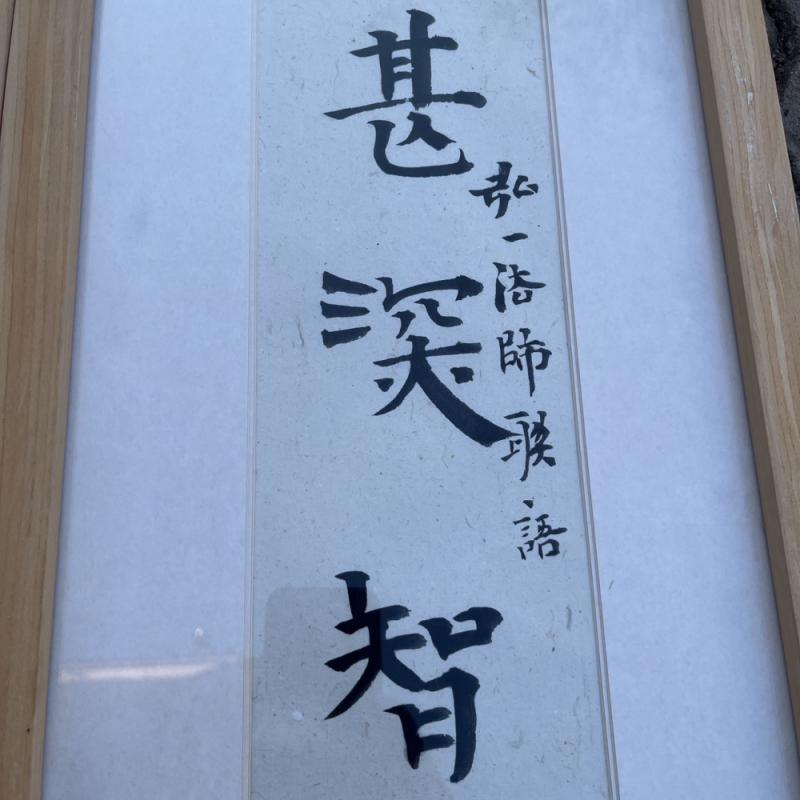 弘一法師聯語
甚深智